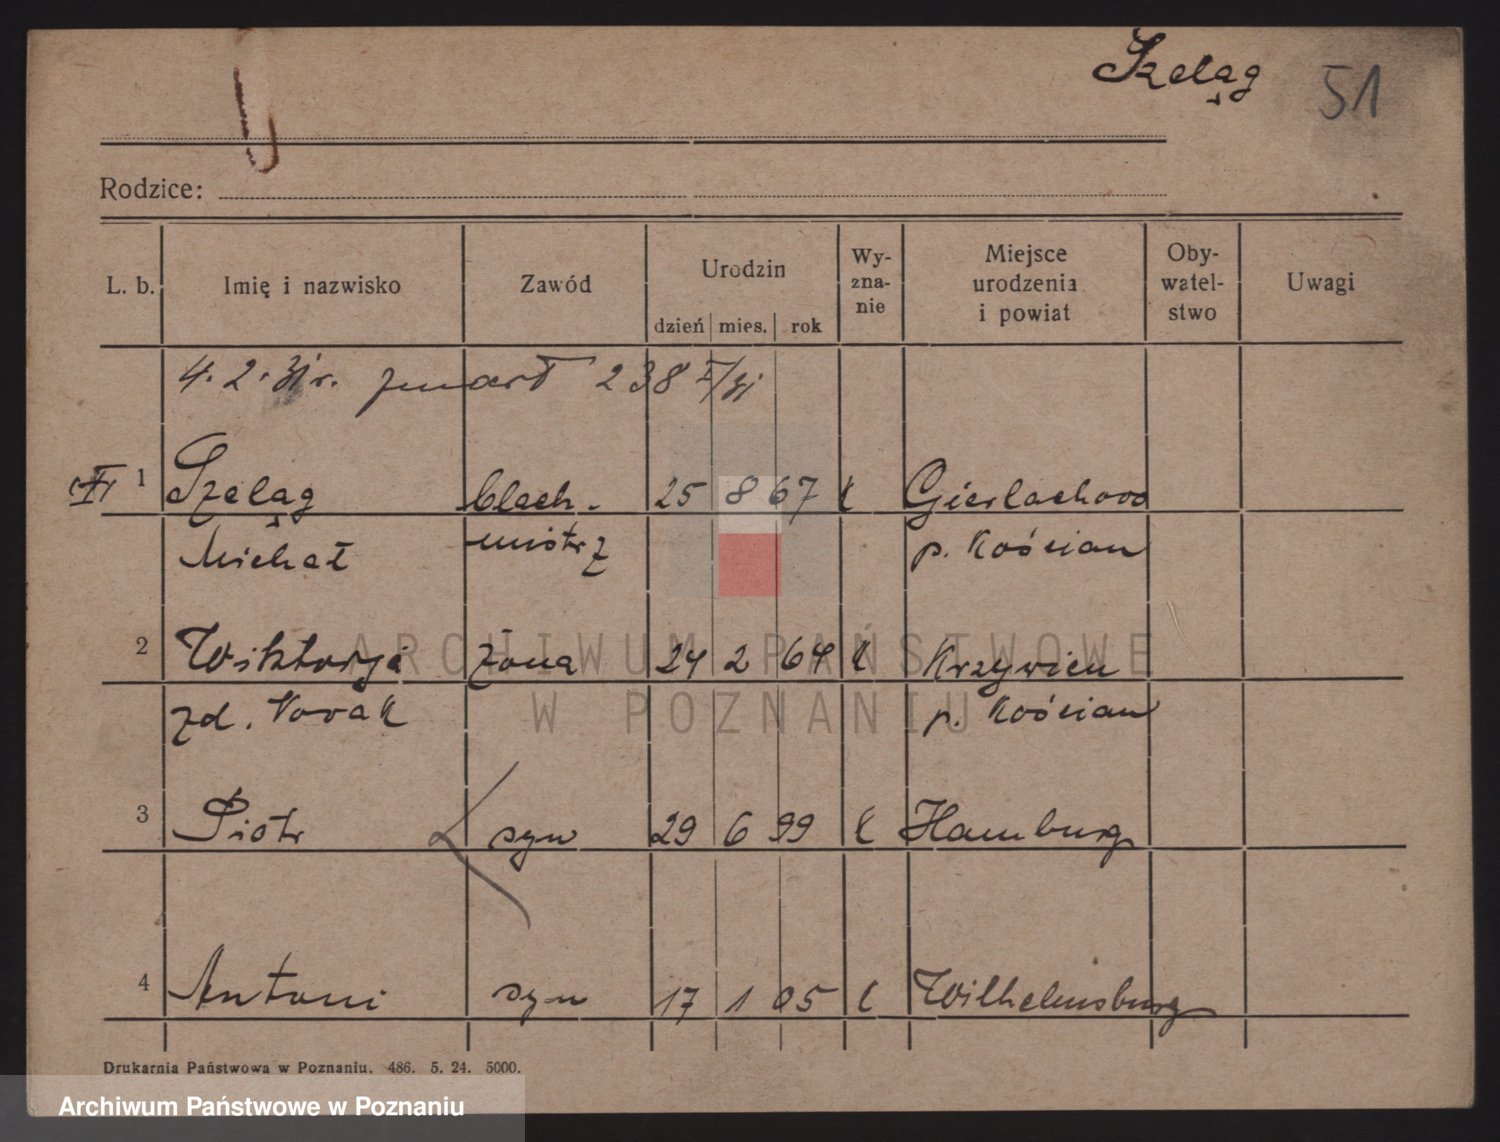 Szeląg 51
Rodzice:
L. b. Imię i nazwisko Zawód Urodzin dzień mies. rok Wy-zna-nie Miejsce urodzenia i powiat Oby-watel-stwo Uwagi
4. 2. 31 r. zmarł 238 I/31
1 Szeląg blach- 25 8 67 k Gierlachowo
Michał mistrz p. Kościan
2 Wiktorja żona 24 2 64 k Krzywień
zd. Nowak p. Kościan
3 Piotr syn 29 6 99 k Hamburg
4 Antoni syn 17 1 05 k Wilhelmsburg
Drukarnia Państwowa w Poznaniu. 486. 5. 24. 5000.
ARCHIWUM PAŃSTWOWE
W POZNANIU
Archiwum Państwowe w Poznaniu